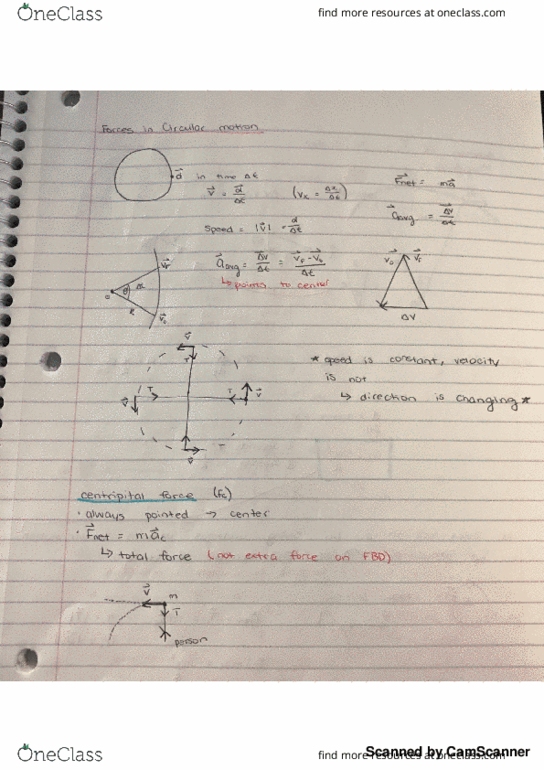 OneClass
find more resources at oneclass.com
Forces in Circular motion
d⃗ in time Δt
v⃗ = d⃗/Δt (vₓ = Δx/Δt)
F⃗net = ma⃗
speed = |v⃗| = d/Δt
a⃗avg = Δv⃗/Δt
a⃗avg = Δv⃗/Δt = (v⃗f - v⃗o)/Δt
↳ points to center
v⃗f
θ
R
v⃗o
v⃗o v⃗f
ΔV
v⃗
T
v⃗ T T v⃗
v⃗
* speed is constant, velocity
is not
↳ direction is changing *
centripital force (Fc)
· always pointed → center
· F⃗net = ma⃗c
↳ total force (not extra force on FBD)
v⃗ m
T⃗
person
Scanned by CamScanner
OneClass
find more resources at oneclass.com